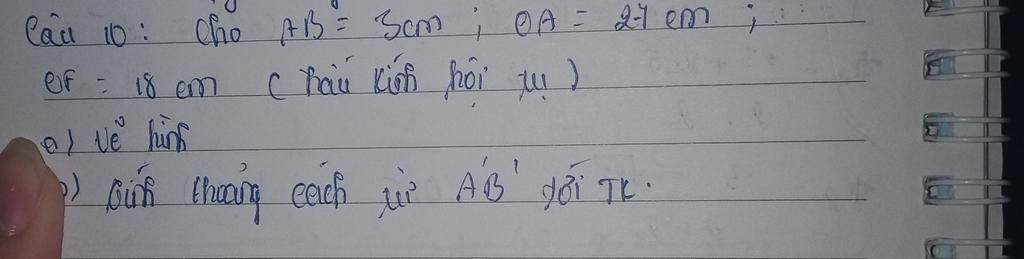 Câu 10: Cho AB = 3cm; OA = 27 cm;
OF = 18 cm (thấu kính hội tụ)
a) Vẽ hình
b) Tính khoảng cách từ A'B' tới TK.